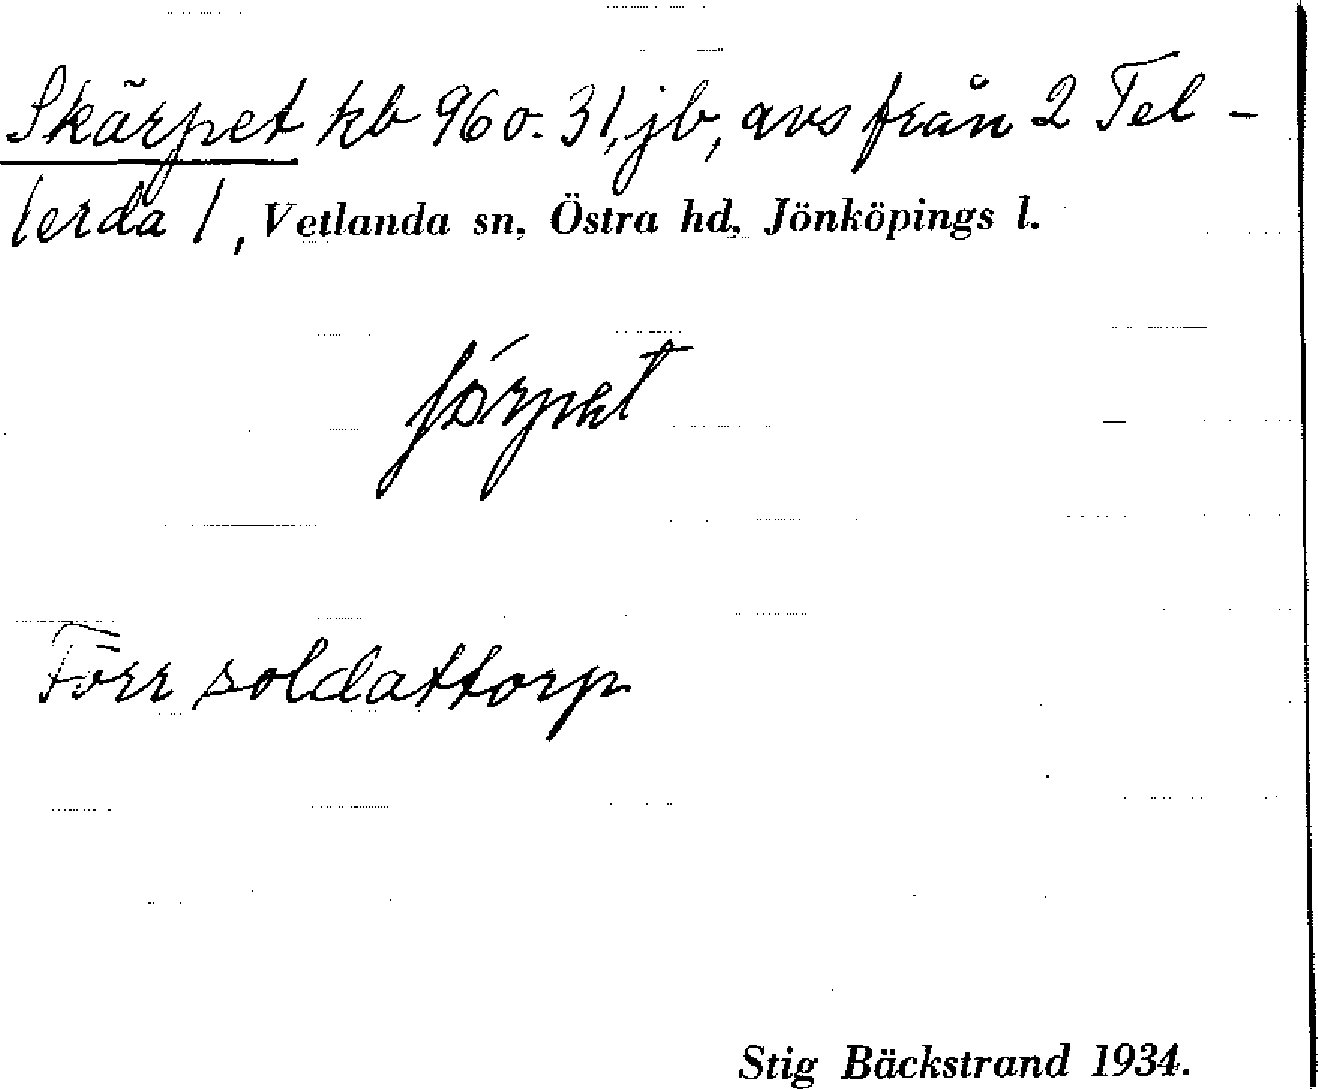 Skärpet kb 96 o. 31, jb, avs från 2 Tel-
lerda 1, Vetlanda sn, Östra hd, Jönköpings l.
Förr soldattorp
Stig Bäckstrand 1934.